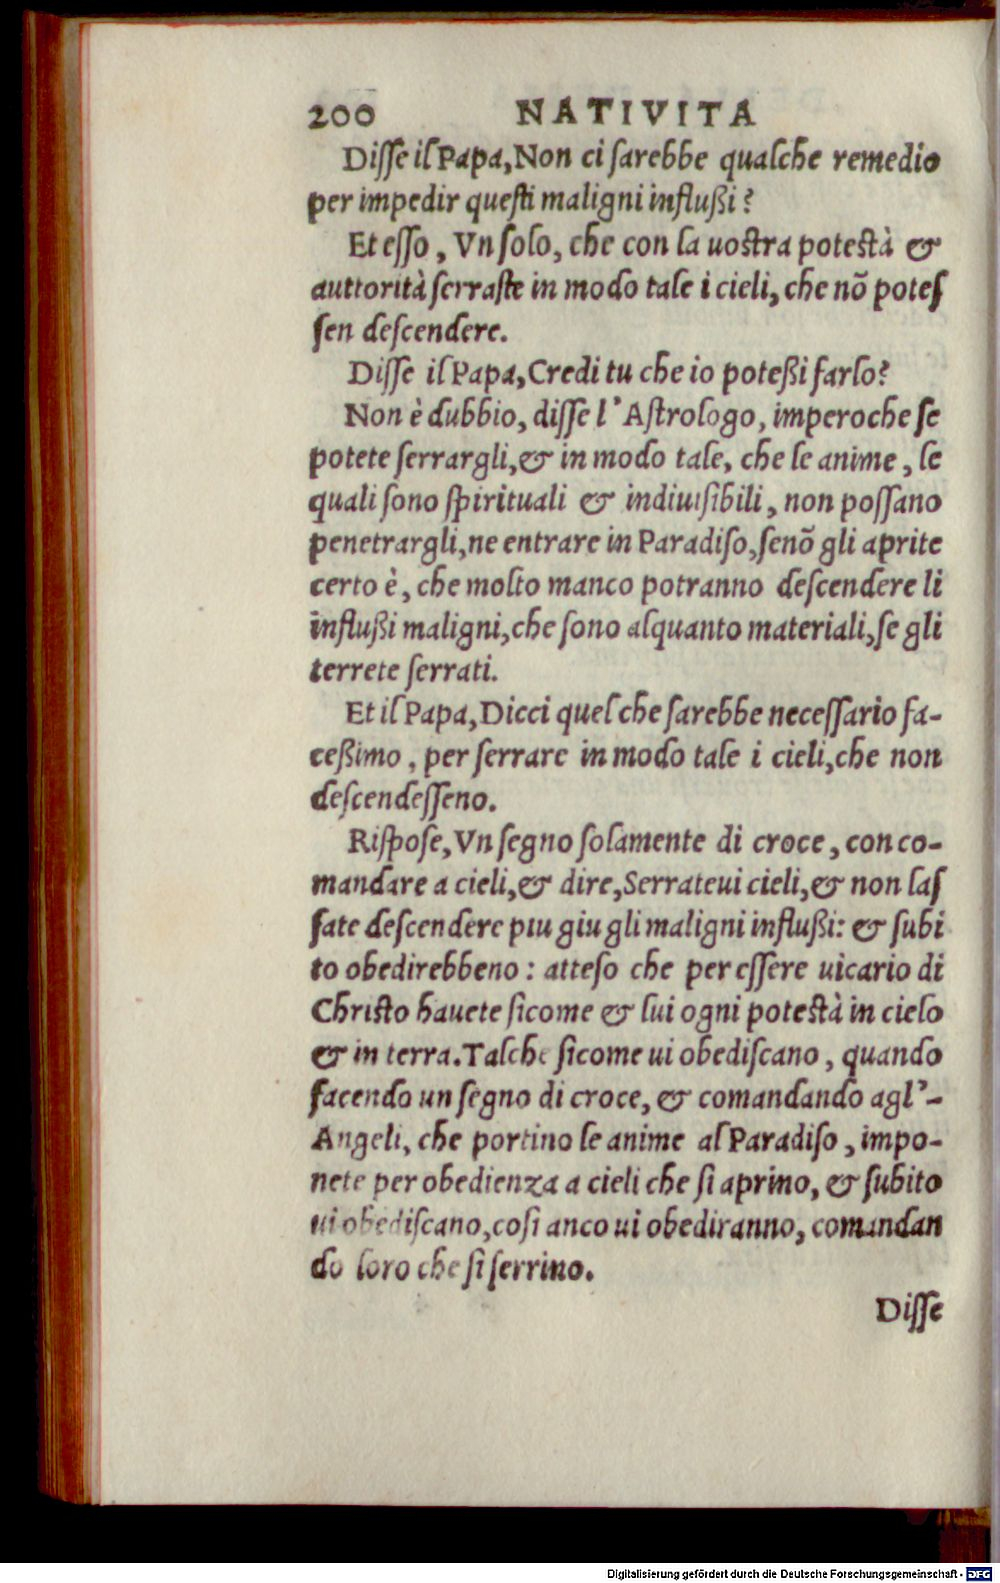 200 NATIVITA
Disse il Papa, Non ci sarebbe qualche remedio
per impedir questi maligni influßi?
Et esso, Vn solo, che con la uostra potestà &
auttorità serraste in modo tale i cieli, che nō potes
sen descendere.
Disse il Papa, Credi tu che io poteßi farlo?
Non è dubbio, disse l'Astrologo, imperoche se
potete serrargli, & in modo tale, che le anime, le
quali sono spirituali & indiuisibili, non possano
penetrargli, ne entrare in Paradiso, senō gli aprite
certo è, che molto manco potranno descendere li
influßi maligni, che sono alquanto materiali, se gli
terrete serrati.
Et il Papa, Dicci quel che sarebbe necessario fa-
ceßimo, per serrare in modo tale i cieli, che non
descendesseno.
Rispose, Vn segno solamente di croce, con co-
mandare a cieli, & dire, Serrateui cieli, & non las
sate descendere piu giu gli maligni influßi: & subi
to obedirebbeno: atteso che per essere uicario di
Christo hauete sicome & lui ogni potestà in cielo
& in terra. Talche sicome ui obediscano, quando
facendo un segno di croce, & comandando agl'-
Angeli, che portino le anime al Paradiso, impo-
nete per obedienza a cieli che si aprino, & subito
ui obediscano, cosi anco ui obediranno, comandan
do loro che si serrino.
Disse
Digitalisierung gefördert durch die Deutsche Forschungsgemeinschaft - DFG